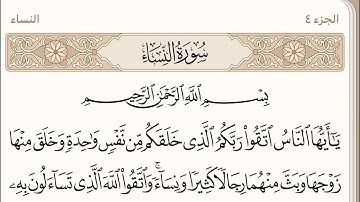 الجزء ٤
النساء
سُورَةُ النِّسَاءِ
بِسْمِ ٱللَّهِ ٱلرَّحْمَٰنِ ٱلرَّحِيمِ
يَٰٓأَيُّهَا ٱلنَّاسُ ٱتَّقُوا۟ رَبَّكُمُ ٱلَّذِى خَلَقَكُم مِّن نَّفْسٍ وَٰحِدَةٍ وَخَلَقَ مِنْهَا
زَوْجَهَا وَبَثَّ مِنْهُمَا رِجَالًا كَثِيرًا وَنِسَآءً ۚ وَٱتَّقُوا۟ ٱللَّهَ ٱلَّذِى تَسَآءَلُونَ بِهِۦ